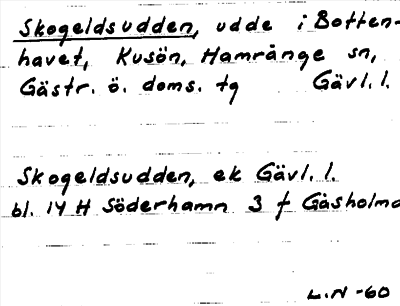 Skogeldsudden, udde i Botten-
havet, Kusön, Hamrånge sn,
Gästr. ö. doms. tg Gävl. l.
Skogeldsudden, ek Gävl. l.
bl. 14 H Söderhamn 3 f Gåsholma
L.N -60